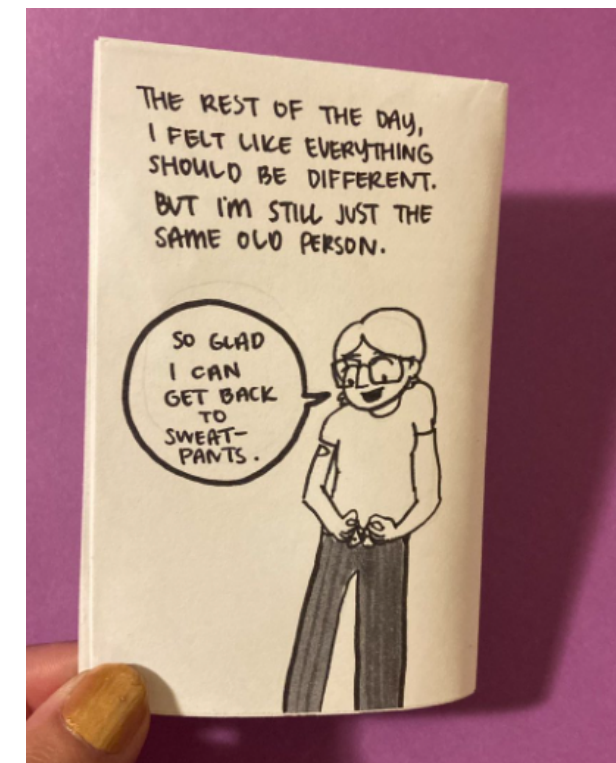 THE REST OF THE DAY,
I FELT LIKE EVERYTHING
SHOULD BE DIFFERENT.
BUT I'M STILL JUST THE
SAME OLD PERSON.
SO GLAD
I CAN
GET BACK
TO
SWEAT-
PANTS.